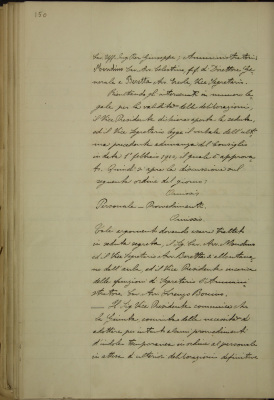 150
Cav. Uff. Ing. Pon Giuseppe, Amministratori,
Cav. Avv. Celestino ff. di Direttore Ge-
nerale e Avv. Carlo, Vice Segretario.
Riscontrando gli intervenuti in numero le-
gale per la validità delle deliberazioni,
il Vice Presidente dichiara aperta la seduta,
ed il Vice Segretario legge il verbale dell'
precedente adunanza del Consiglio
in data 5 febbraio 1912, il quale è approva-
to. Quindi s'apre la discussione sul
seguente ordine del giorno:
Omissis
Personale – Provvedimenti.
Omissis
Tale argomento dovendo essere trattato
in seduta segreta, il Sig. Cav. Avv.
ed il Vice Segretario Avv. si allontana-
no dall'aula, ed il Vice Presidente incarica
delle funzioni di Segretario l'Ammini-
stratore Cav. Avv. Lorenzo
— Il Sig. Vice Presidente comunica che
la Giunta convinta della necessità di
adottare per intanto alcuni provvedimenti
d'indole temporanea in ordine al personale
in attesa di ulteriori deliberazioni definitive